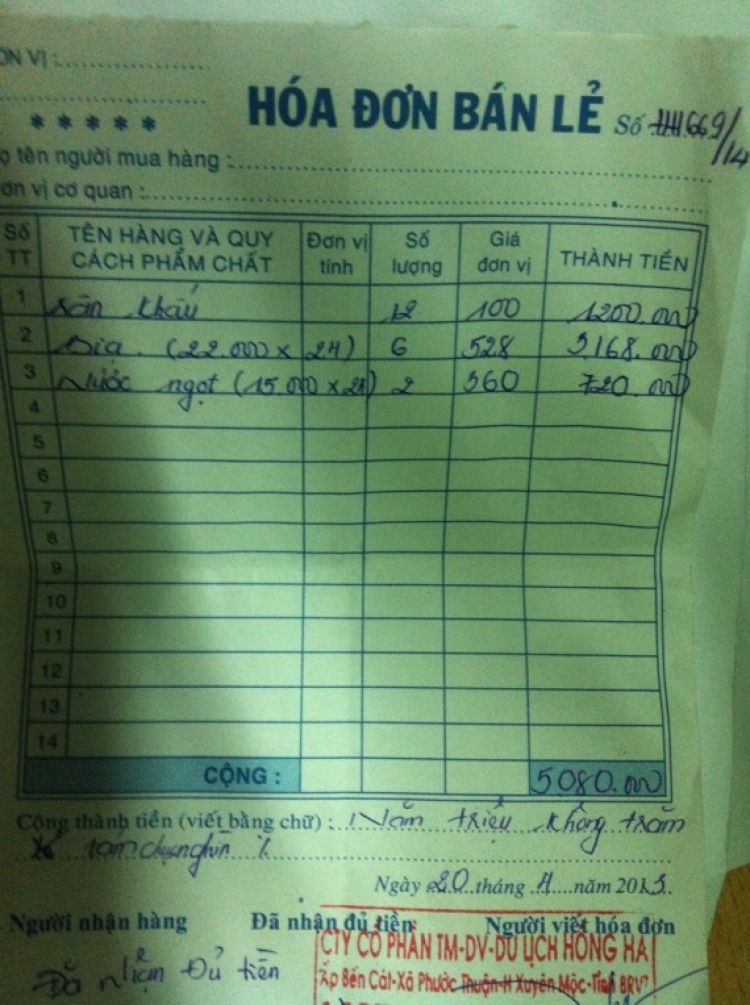 ƠN VỊ :
* * * * *
HÓA ĐƠN BÁN LẺ Số 669/14
ọ tên người mua hàng :
ơn vị cơ quan :
Số TT TÊN HÀNG VÀ QUY CÁCH PHẨM CHẤT Đơn vị tính Số lượng Giá đơn vị THÀNH TIỀN
1 Sân khấu 12 100 1200.000
2 Bia (22.000 x 24) 6 528 3,168.000
3 Nước ngọt (15.000 x 24) 2 360 720.000
4
5
6
7
8
9
10
11
12
13
14
CỘNG : 5080.000
Cộng thành tiền (viết bằng chữ) : Năm triệu không trăm
tám chục nghìn
Ngày 20 tháng 4 năm 2013.
Người nhận hàng Đã nhận đủ tiền Người viết hóa đơn
CTY CỔ PHẦN TM-DV-DU LỊCH HỒNG HÀ
Đã nhận Đủ tiền
Ấp Bến Cát-Xã Phước Thuận-H Xuyên Mộc-Tỉnh BRVT